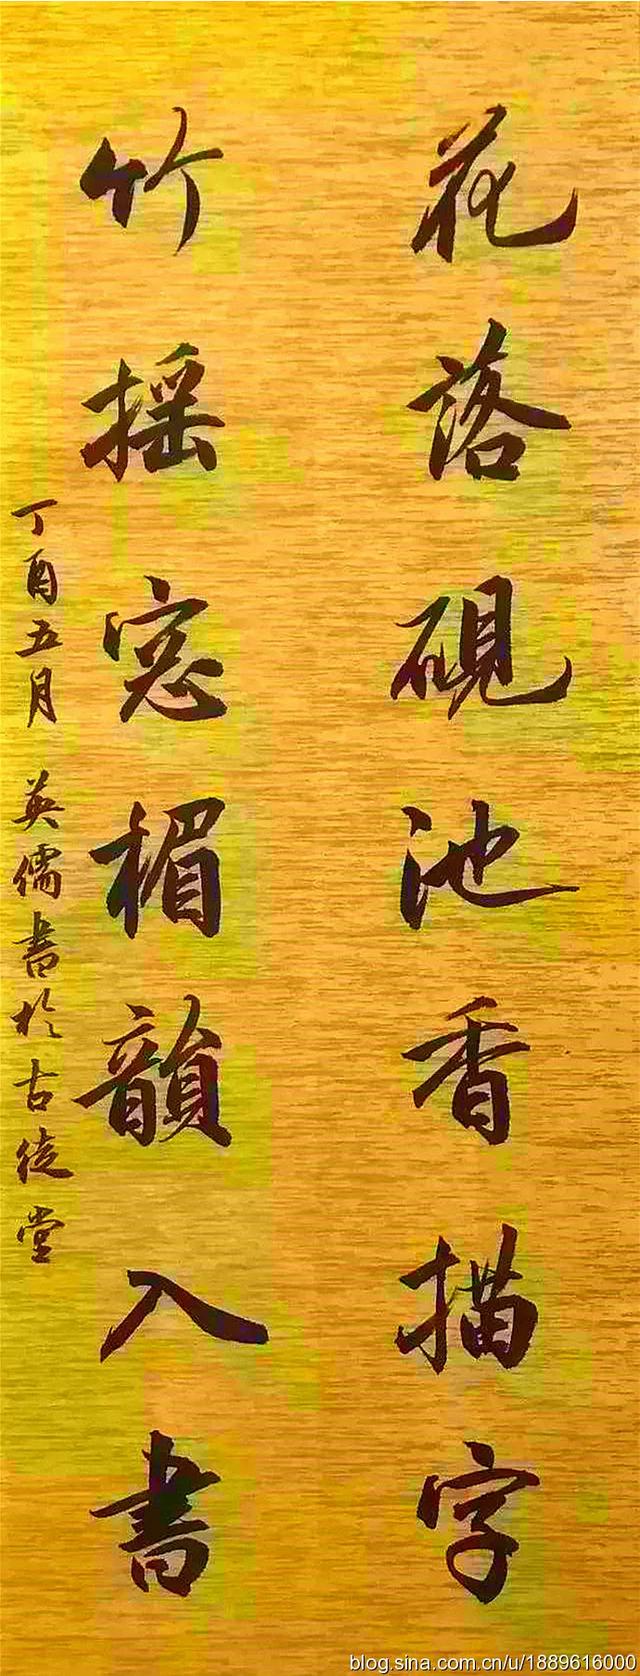 花落硯池香描字
竹摇窓楣韻入書
丁酉五月 英儒書於古徒堂
blog.sina.com.cn/u/1889616000